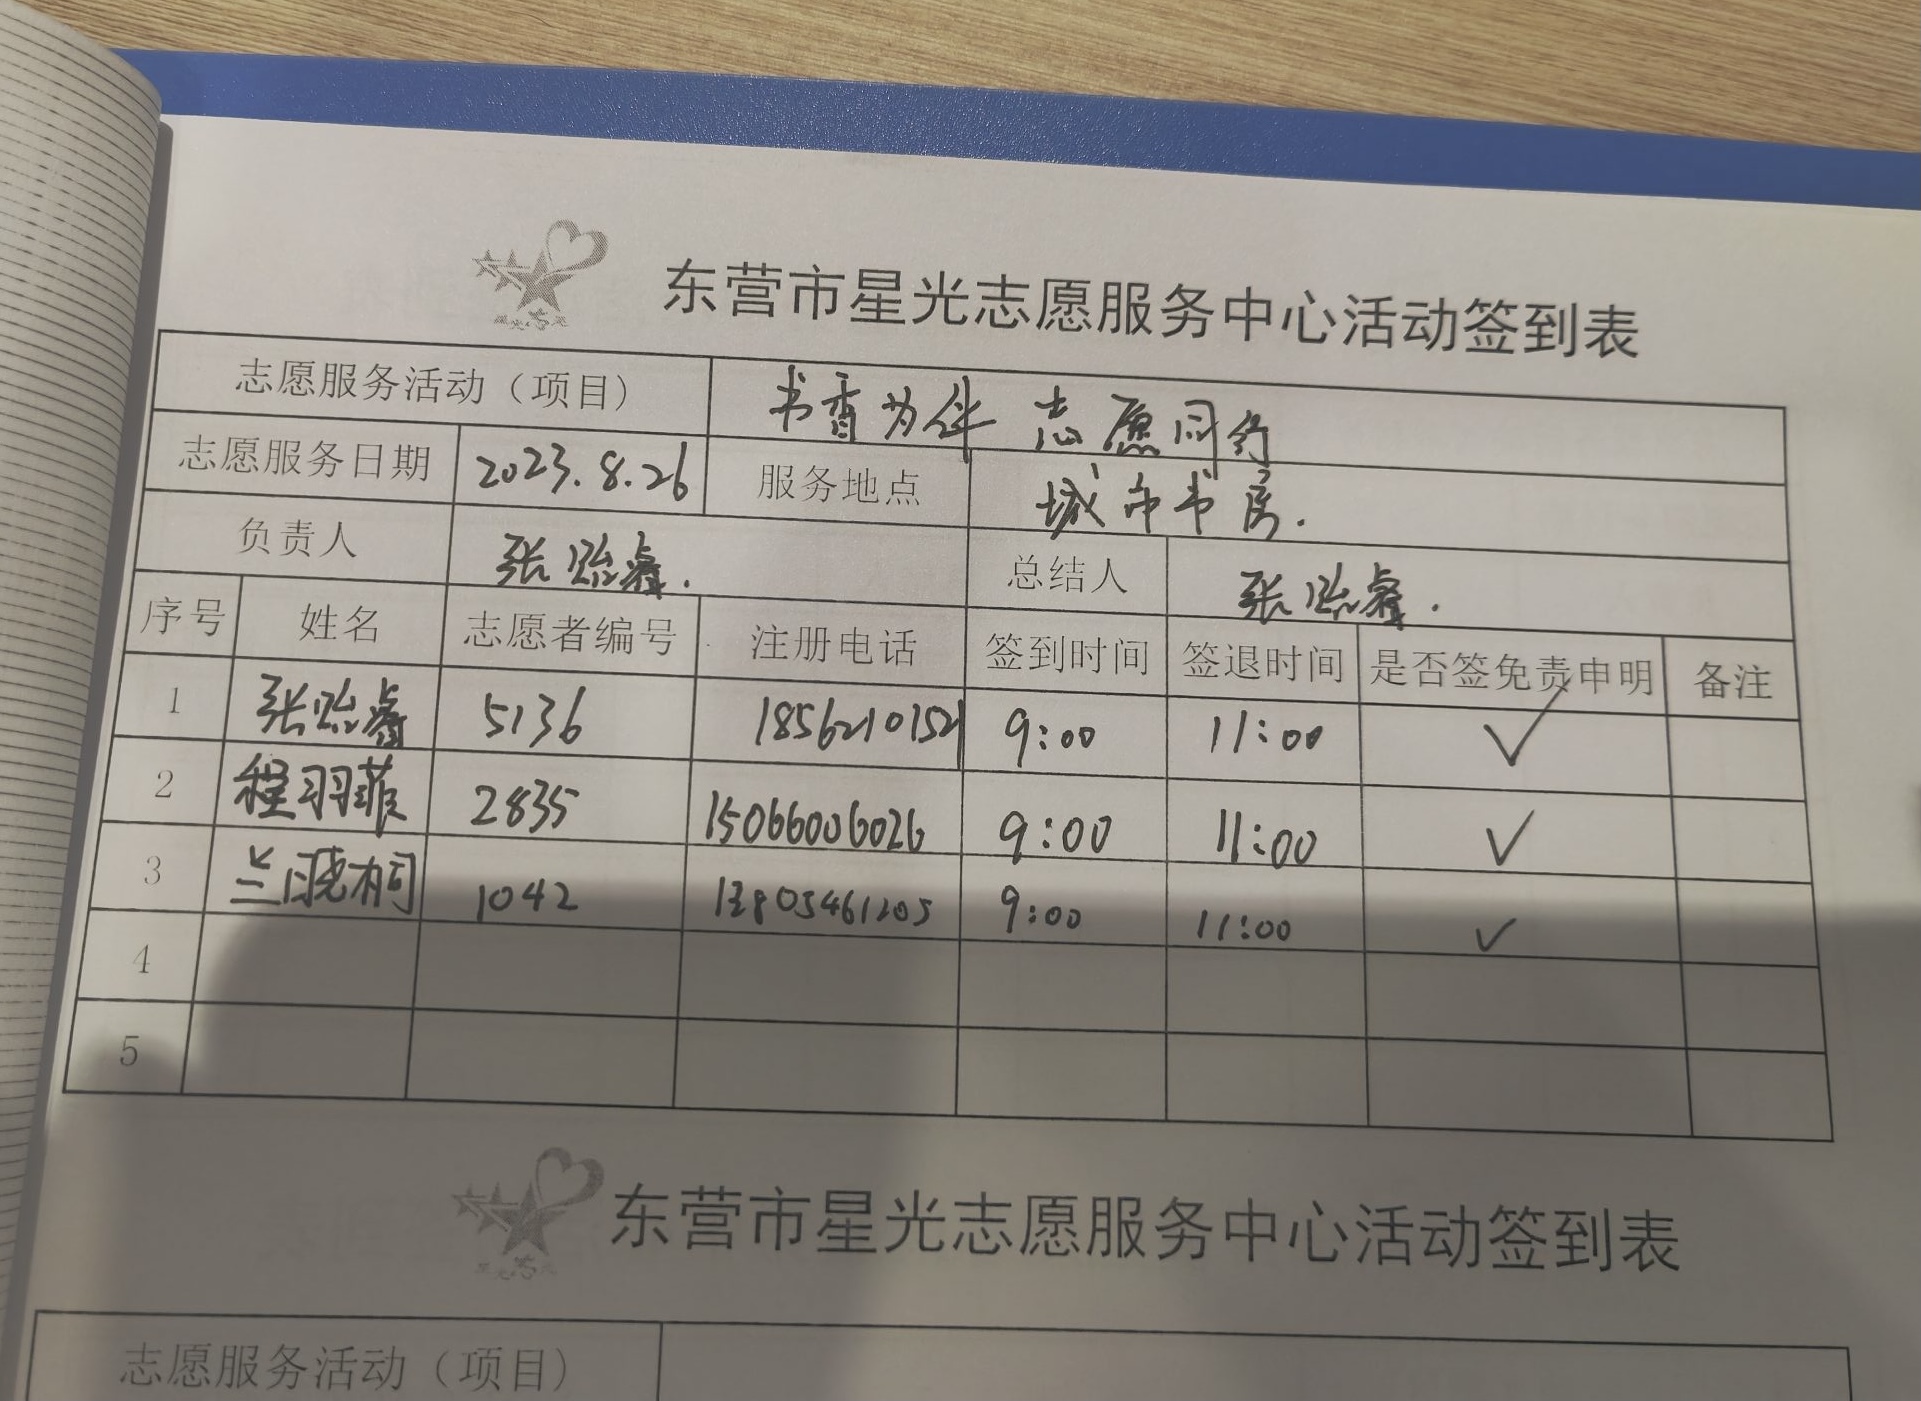 东营市星光志愿服务中心活动签到表
志愿服务活动（项目） 书香为伴 志愿同行
志愿服务日期 2023.8.26 服务地点 城市书房.
负责人 张贻睿. 总结人 张贻睿.
序号 姓名 志愿者编号 注册电话 签到时间 签退时间 是否签免责申明 备注
1 张贻睿 5136 18562101521 9:00 11:00 ✓
2 程羽菲 2835 15066006026 9:00 11:00 ✓
3 兰晓桐 1042 13805461205 9:00 11:00 ✓
4
5
东营市星光志愿服务中心活动签到表
志愿服务活动（项目）